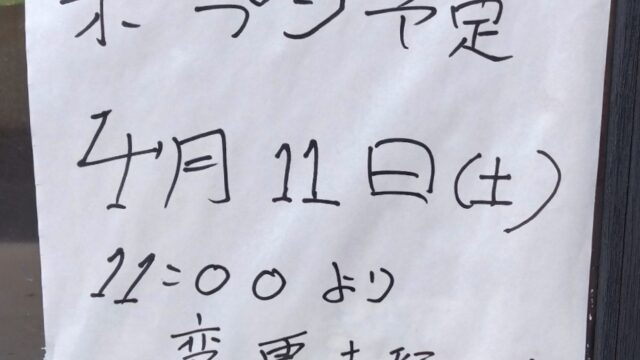 オープン予定
4月11日(土)
11:00より
変更